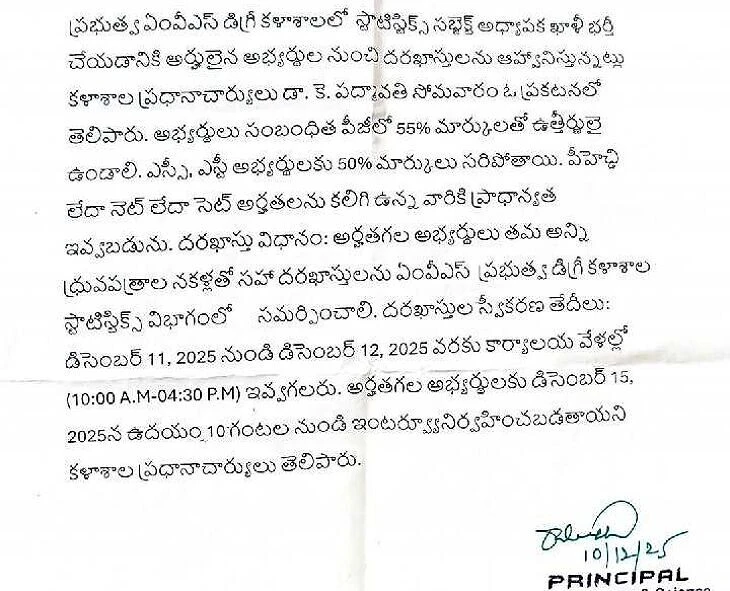 ప్రభుత్వ ఏంవీఎస్ డిగ్రీ కళాశాలలో స్టాటిస్టిక్స్ సబ్జెక్ట్ అధ్యాపక ఖాళీ భర్తీ
చేయడానికి అర్హులైన అభ్యర్థుల నుంచి దరఖాస్తులను ఆహ్వానిస్తున్నట్లు
కళాశాల ప్రధానాచార్యులు డా. కె. పద్మావతి సోమవారం ఓ ప్రకటనలో
తెలిపారు. అభ్యర్థులు సంబంధిత పీజీలో 55% మార్కులతో ఉత్తీర్ణులై
ఉండాలి. ఎస్సీ, ఎస్టీ అభ్యర్థులకు 50% మార్కులు సరిపోతాయి. పీహెచ్డి
లేదా నెట్ లేదా సెట్ అర్హతలను కలిగి ఉన్న వారికి ప్రాధాన్యత
ఇవ్వబడును. దరఖాస్తు విధానం: అర్హతగల అభ్యర్థులు తమ అన్ని
ధ్రువపత్రాల నకళ్లతో సహా దరఖాస్తులను ఏంవీఎస్ ప్రభుత్వ డిగ్రీ కళాశాల
స్టాటిస్టిక్స్ విభాగంలో సమర్పించాలి. దరఖాస్తుల స్వీకరణ తేదీలు:
డిసెంబర్ 11, 2025 నుండి డిసెంబర్ 12, 2025 వరకు కార్యాలయ వేళల్లో
(10:00 A.M-04:30 P.M) ఇవ్వగలరు. అర్హతగల అభ్యర్థులకు డిసెంబర్ 15,
2025న ఉదయం 10 గంటల నుండి ఇంటర్వ్యూనిర్వహించబడతాయని
కళాశాల ప్రధానాచార్యులు తెలిపారు.
10/12/25
PRINCIPAL